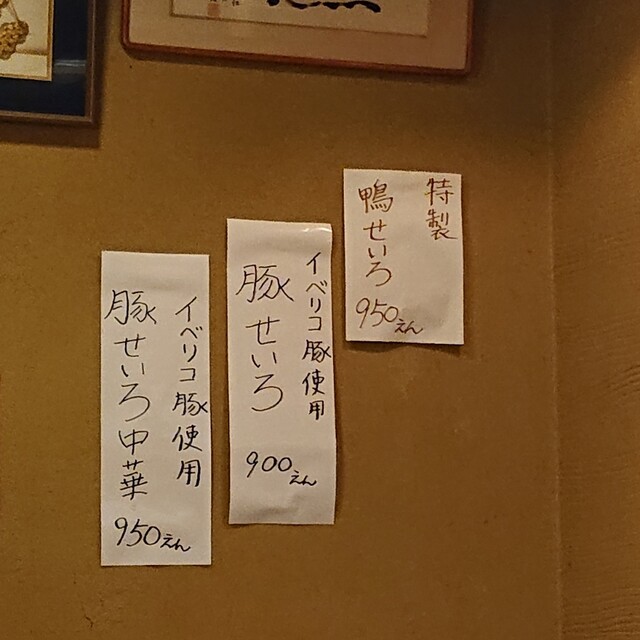 特製
鴨せいろ
950えん
イベリコ豚使用
豚せいろ
900えん
イベリコ豚使用
豚せいろ中華
950えん